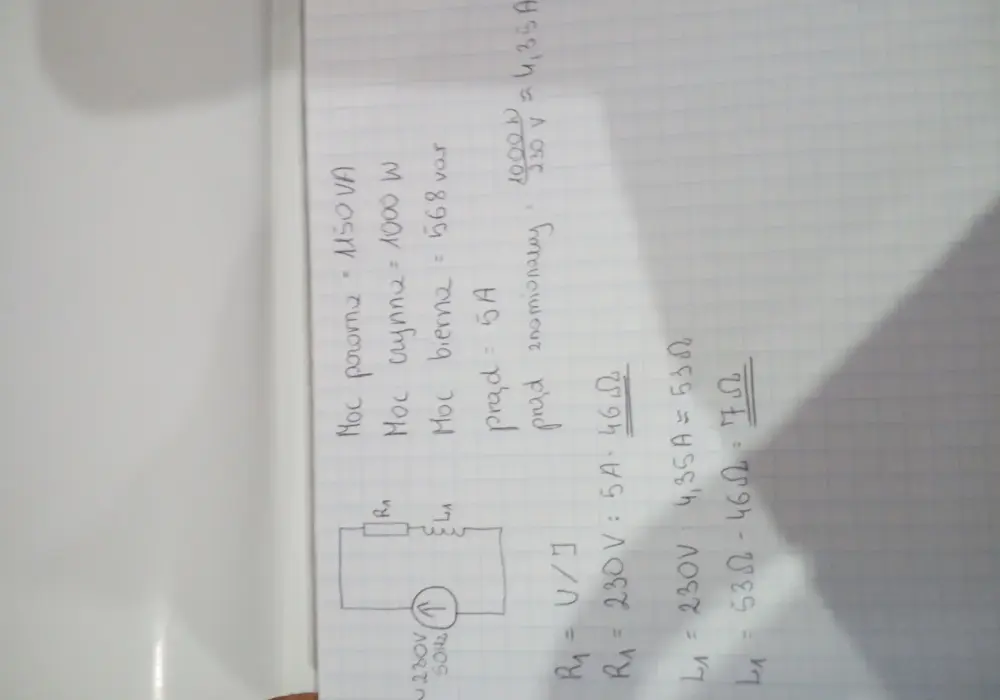 Moc pozorna = 1150 VA
Moc czynna = 1000 W
Moc bierna = 568 var
prąd = 5A
prąd znamionowy = 1000W / 230 V ≈ 4,35A
R1
L1
~230V
50Hz
R1 = U/I
R1 = 230V : 5A = 46Ω
L1 = 230V 4,35A ≈ 53Ω
L1 = 53Ω - 46Ω = 7Ω